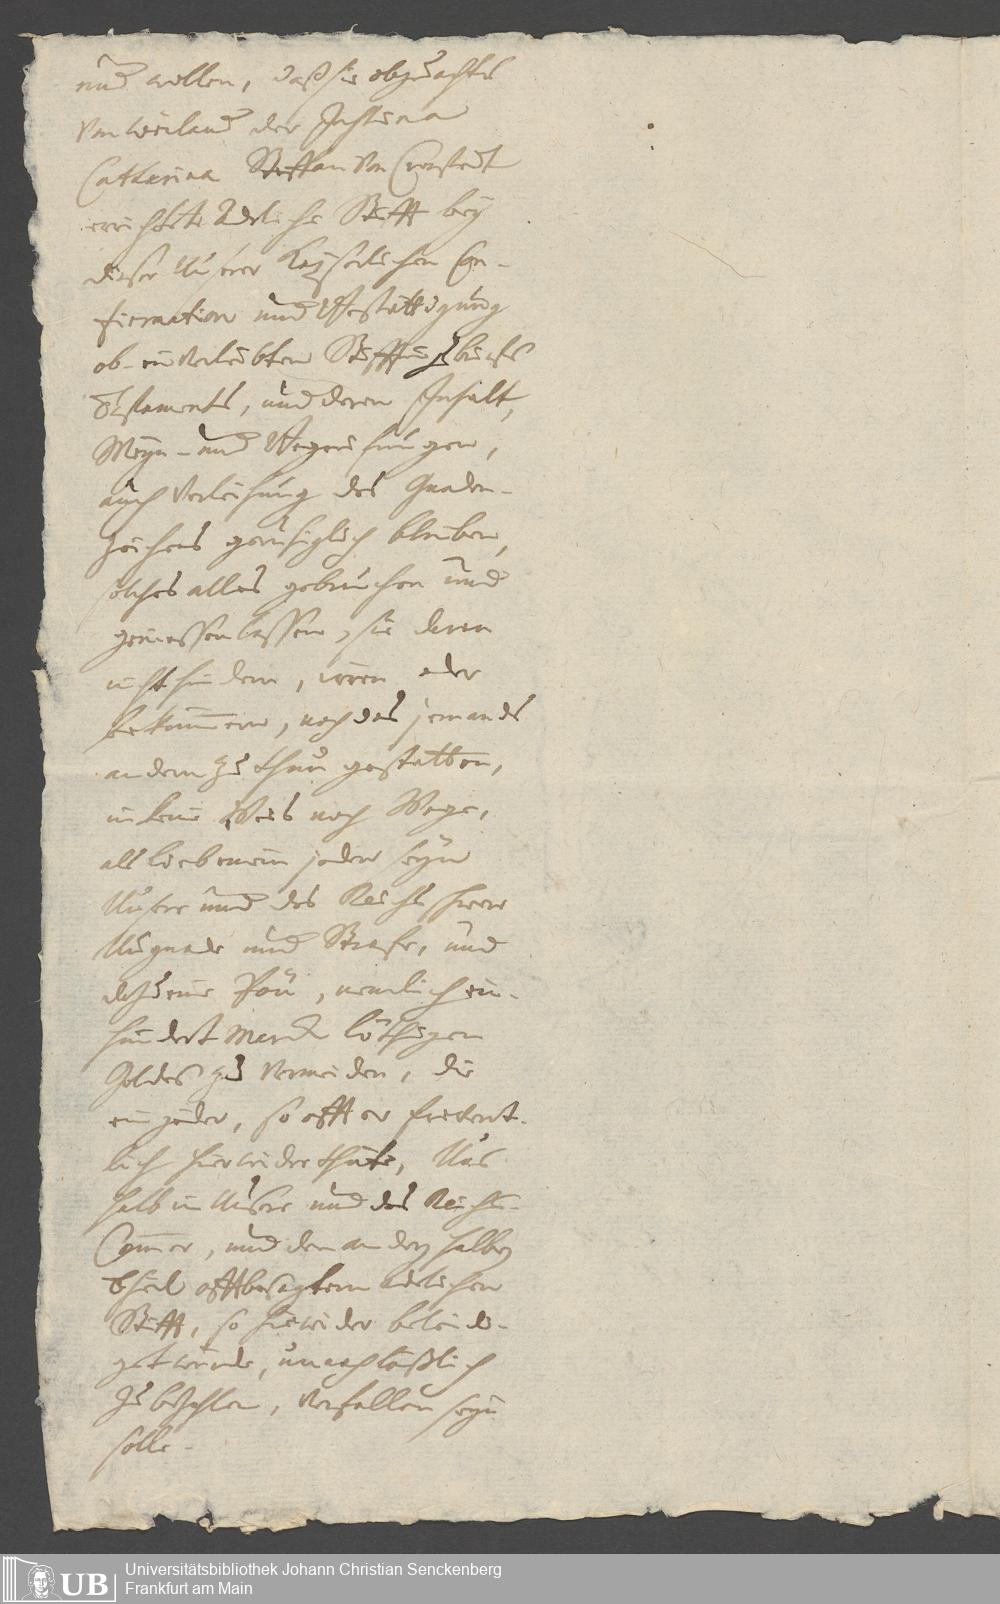 und wollen, daß sie obgedachts
von weiland der Justina
Catharina Steffan von Cronstett
errichtete Adeliche Stifft bey
dieser Unserer Kayserlichen Con-
firmation und Bestättigung
ob-einverleibten Stifftungsbrieffs
Testaments, und deren Inhalt,
Meyn- und Begreiffungen,
auch Verleihung des Gnaden-
zeichens geruhiglich bleiben,
solches alles gebrauchen und
geniessen lassen, sie daran
nicht hindern, irren oder
bekümmern, noch das jemands
andern zu thun gestatten,
in keine Weis noch Wege,
als lieb einem jeden seye
Unsere und des Reichs schwere
Ungnade und Strafe, und
dazu eine Pön, nemlich ein-
hundert Marck löthigen
Goldes zu vermeiden, die
ein jeder, so offt er frevent-
lich hierwider thäte, Uns
halb in Unsere und des Reichs-
Cammer, und den andern halben
theil offtbesagtem Adelichen
Stifft, so hierwider beleidi-
get würde, unnachläßlich
zu bezahlen, verfallen seyn
solle.
Universitätsbibliothek Johann Christian Senckenberg
Frankfurt am Main
UB